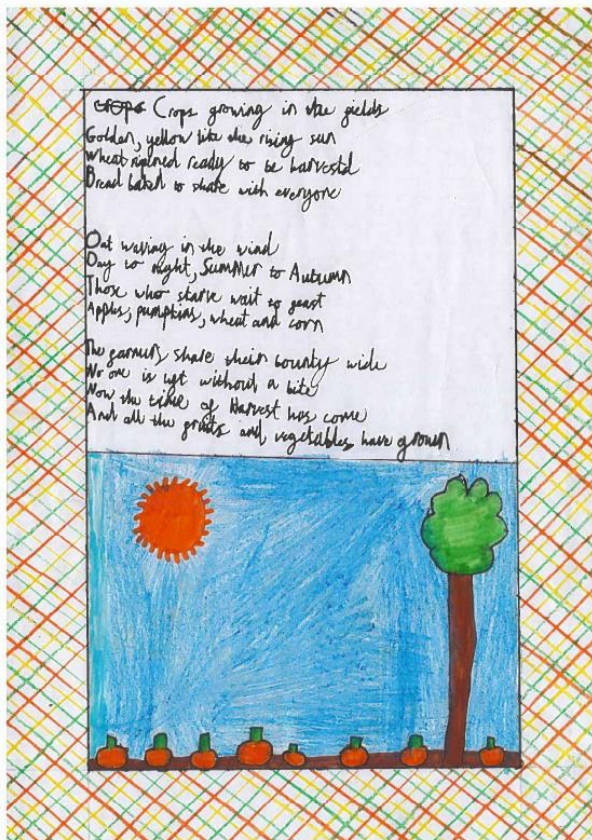 Crops growing in the fields
Golden, yellow like the rising sun
Wheat ripened ready to be harvestd
Bread baked to share with everyone
Oat waving in the wind
Day to night, Summer to Autumn
Those who starve wait to feast
Apples, pumpkins, wheat and corn
The farmers share their bounty wide
No one is left without a bite
Now the time of Harvest has come
And all the fruits and vegetables have grown